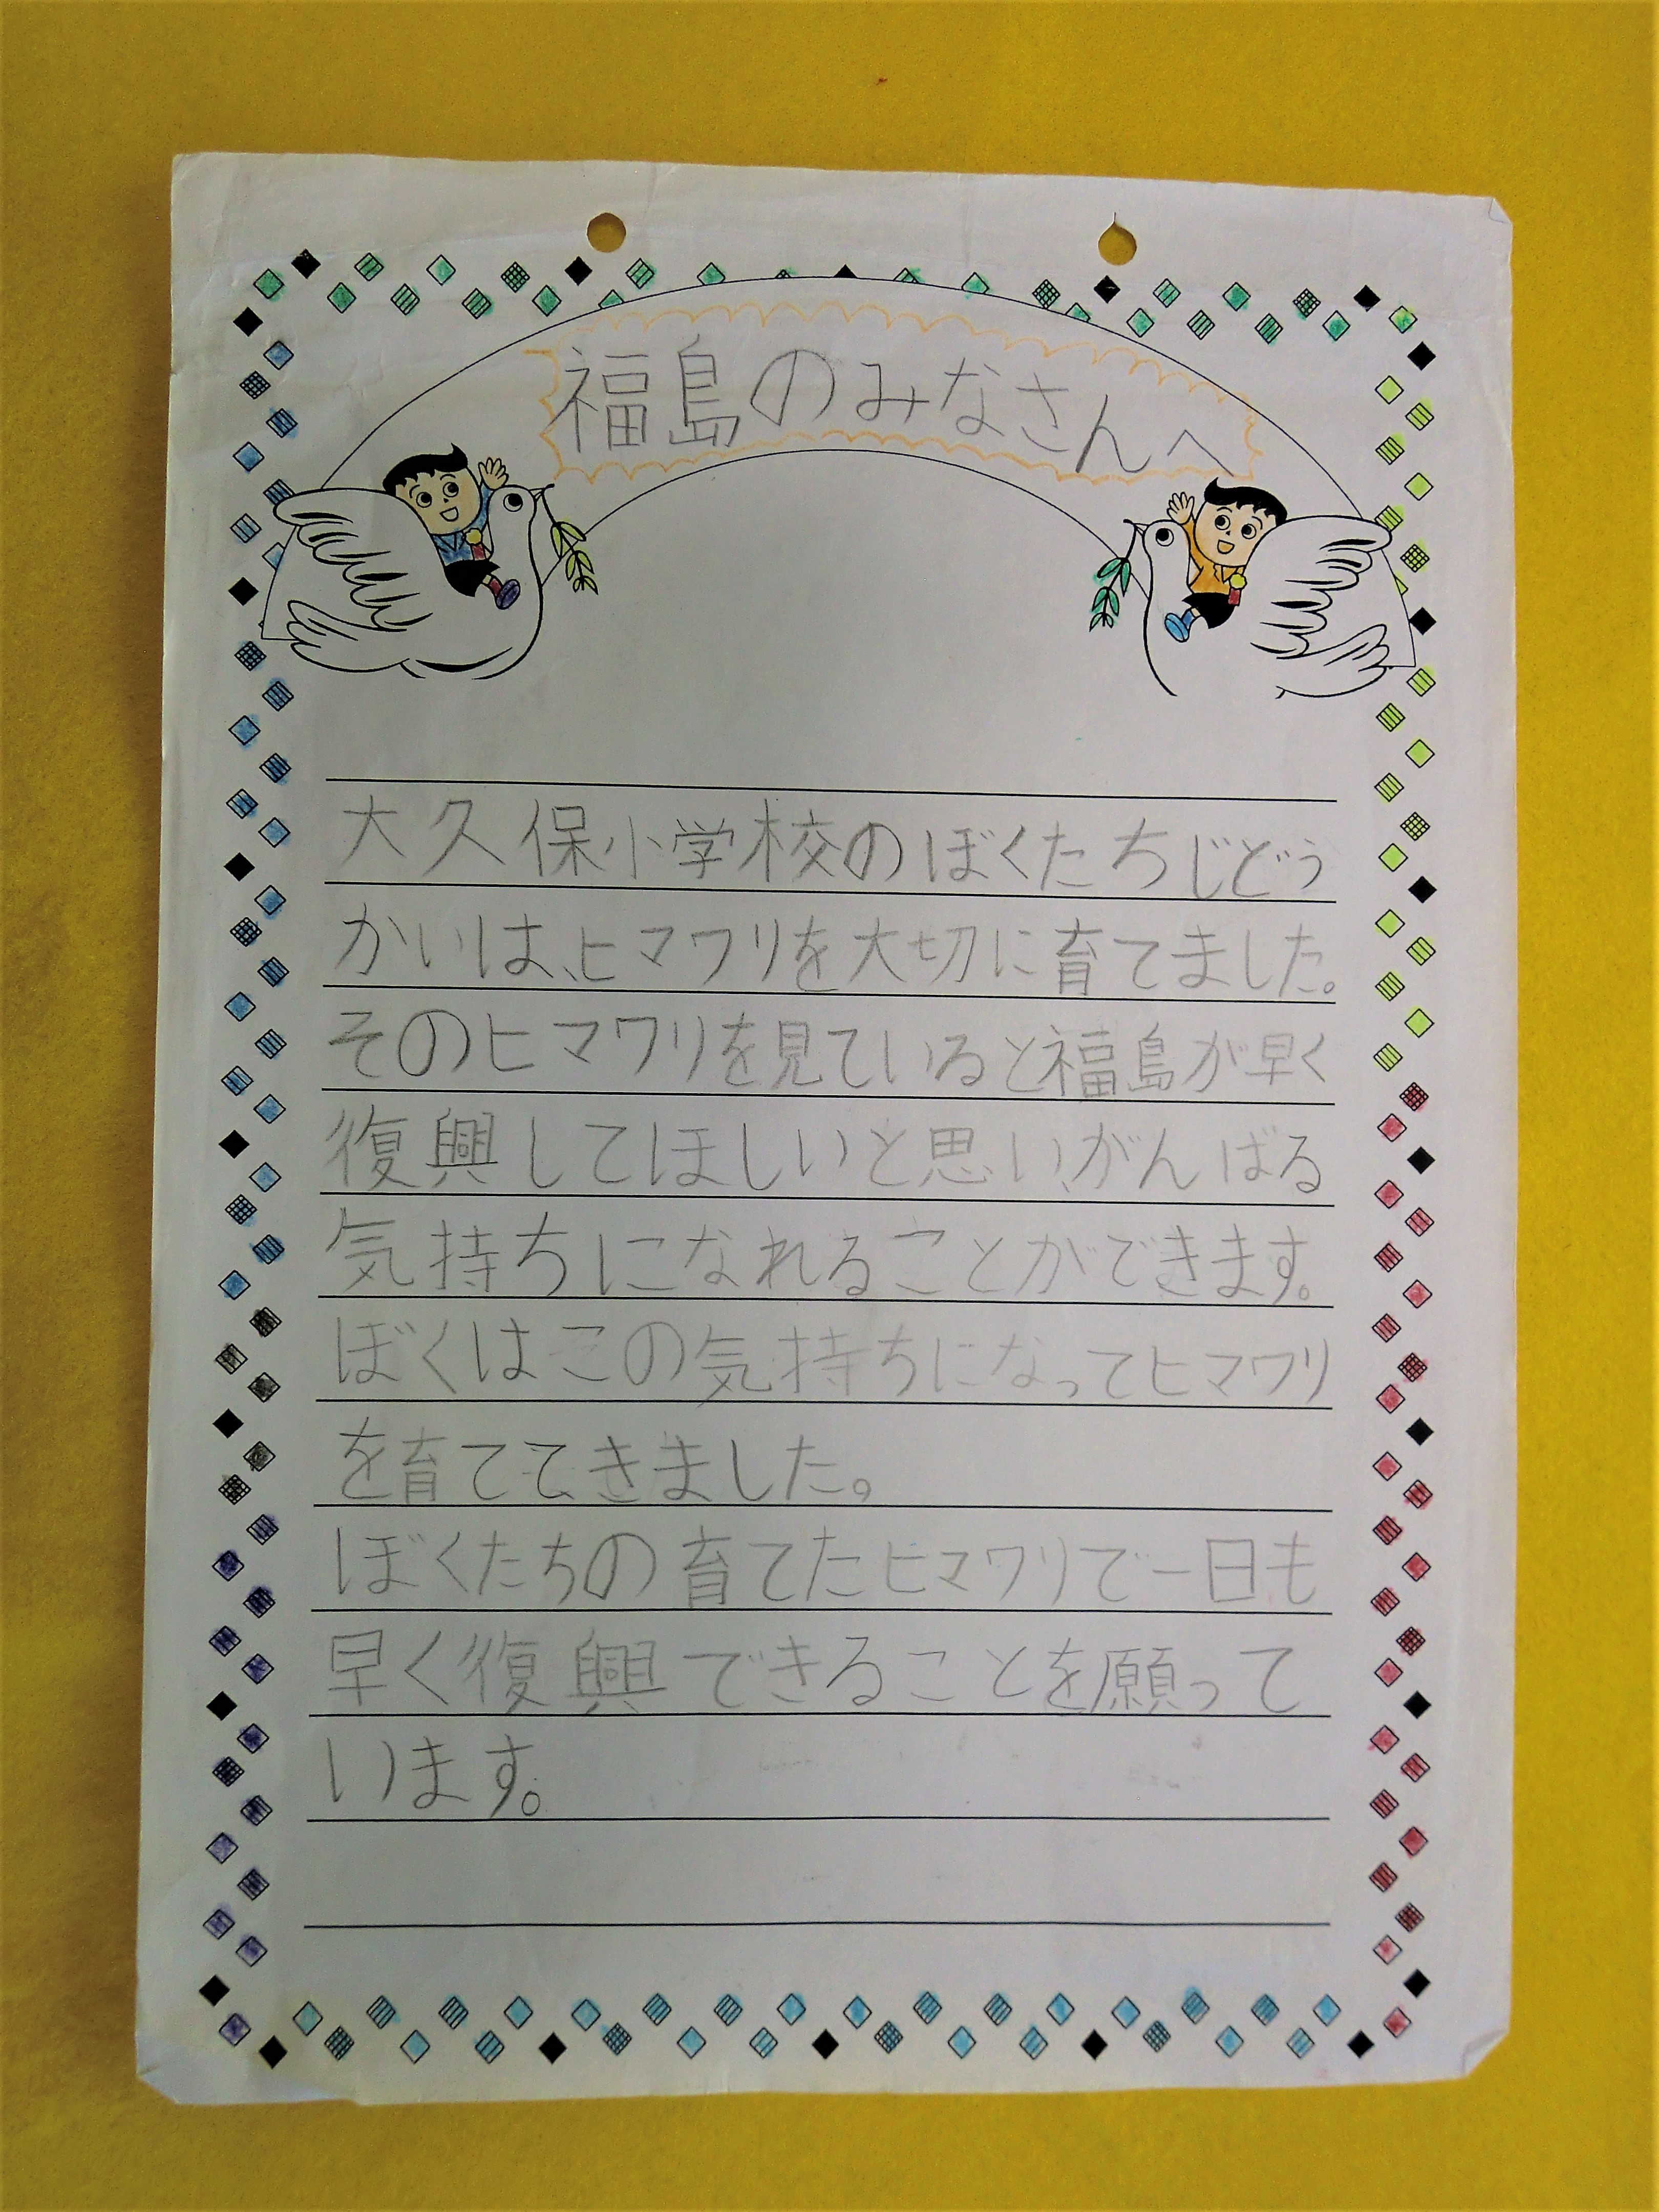 福島のみなさんへ
大久保小学校のぼくたちじどう
かいは、ヒマワリを大切に育てました。
そのヒマワリを見ていると福島が早く
復興してほしいと思い、がんばる
気持ちになれることができます。
ぼくはこの気持ちになってヒマワリ
を育ててきました。
ぼくたちの育てたヒマワリで一日も
早く復興できることを願って
います。